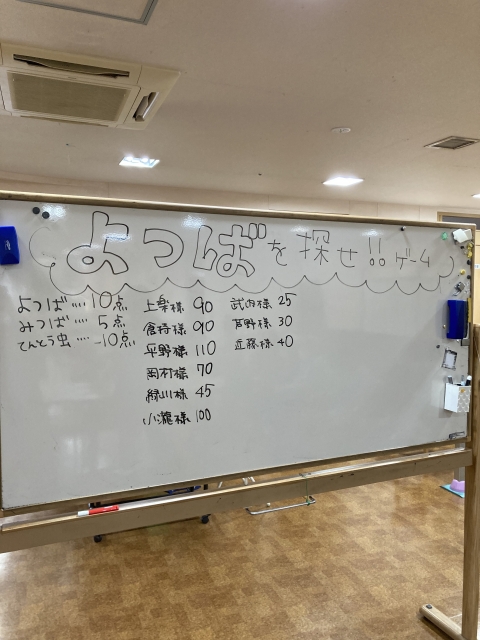 よつばを探せ!!ゲーム
よつば‥‥10点
みつば‥‥5点
てんとう虫‥‥-10点
上楽様 90
倉持様 90
平野様 110
岡村様 70
緑川様 45
小瀧様 100
武内様 25
芦野様 30
近藤様 40